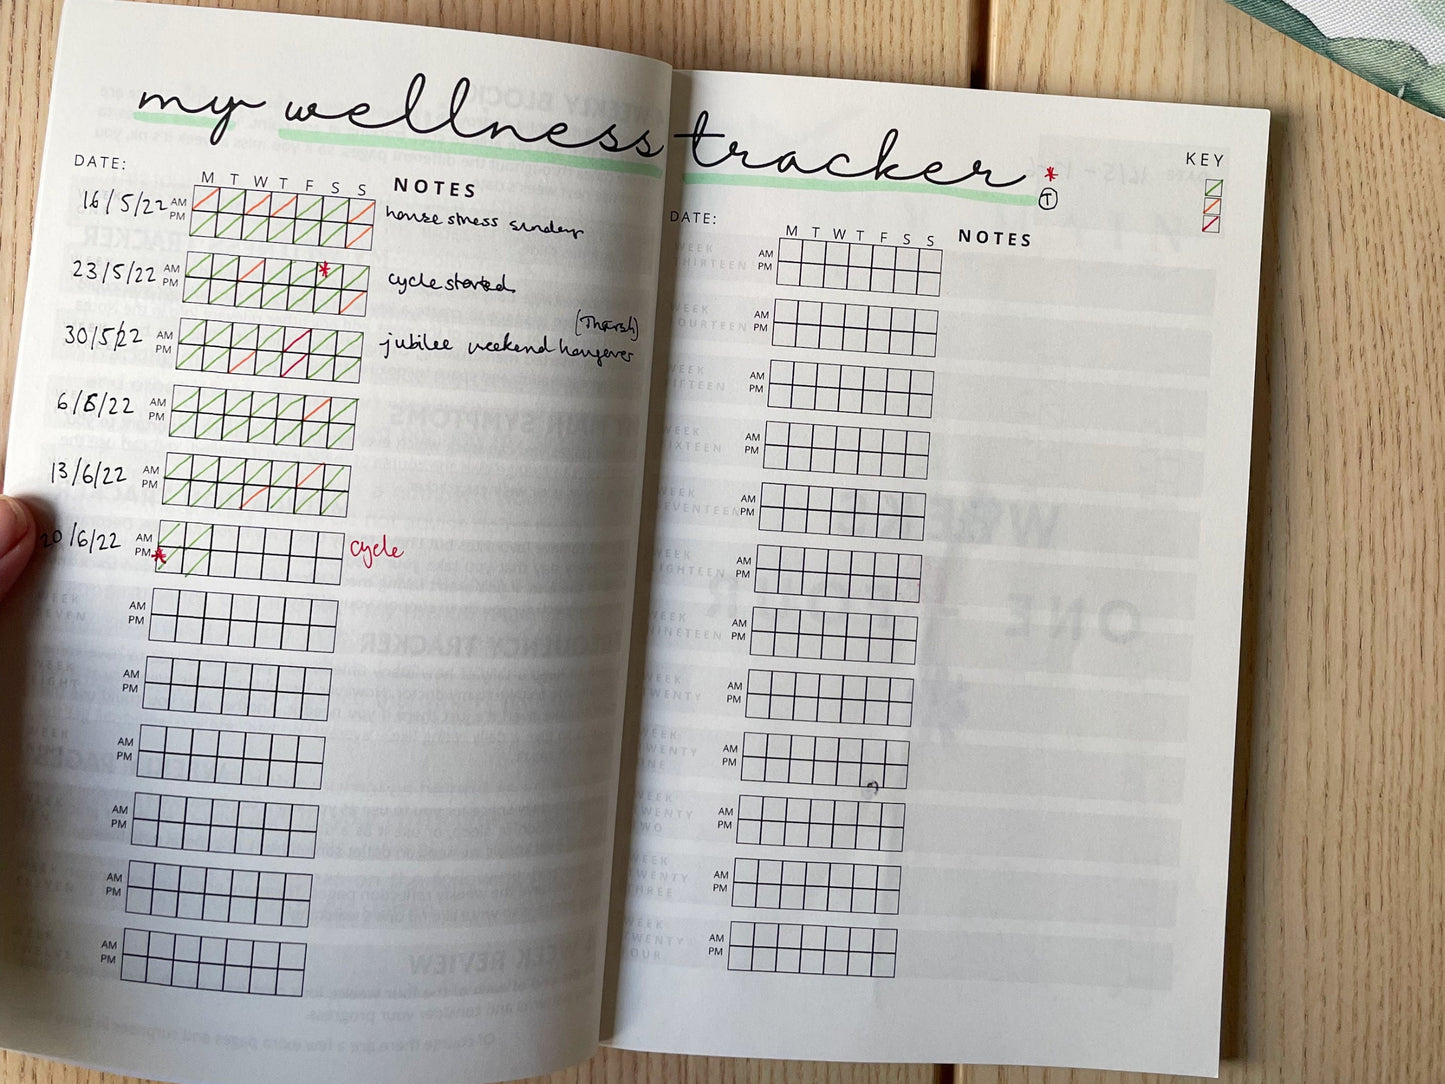 my wellness tracker
DATE:
M T W T F S S
NOTES
16/5/22
AM
PM
house stress sunday
23/5/22
AM
PM
*
cycle started
30/5/22
AM
PM
(Thursh)
jubilee weekend hangover
6/6/22
AM
PM
13/6/22
AM
PM
20/6/22
AM
PM
*
cycle
AM
PM
AM
PM
AM
PM
AM
PM
AM
PM
AM
PM
*
T
KEY
DATE:
M T W T F S S
NOTES
WEEK
THIRTEEN
AM
PM
WEEK
FOURTEEN
AM
PM
WEEK
FIFTEEN
AM
PM
WEEK
SIXTEEN
AM
PM
WEEK
SEVENTEEN
AM
PM
WEEK
EIGHTEEN
AM
PM
WEEK
NINETEEN
AM
PM
WEEK
TWENTY
AM
PM
WEEK
TWENTY
ONE
AM
PM
WEEK
TWENTY
TWO
AM
PM
WEEK
TWENTY
THREE
AM
PM
WEEK
TWENTY
FOUR
AM
PM